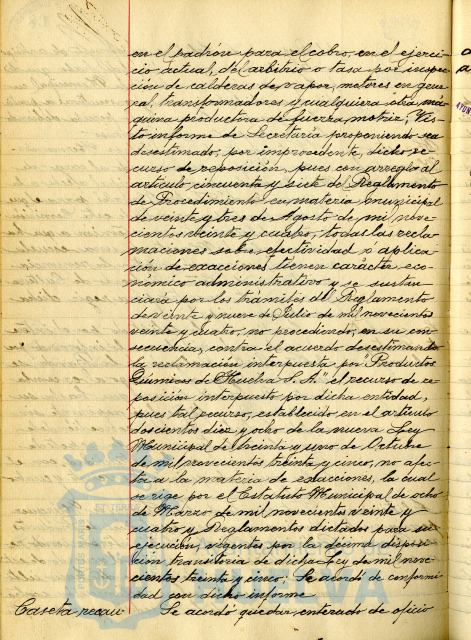 en el padrón para el cobro, en el ejerci-
cio actual, del arbitrio o tasa por inspec-
cion de calderas de vapor, motores en gene-
ral, transformadores y cualquiera otra ma-
quina productora de fuerza motriz; Vis-
to informe de Secretaría proponiendo sea
desestimado, por improcedente, dicho re-
curso de reposición, pues con arreglo al
artículo cincuenta y siete del Reglamento
de Procedimiento en materia municipal
de veinte y tres de Agosto de mil nove-
cientos veinte y cuatro, todas las recla-
maciones sobre efectividad o aplica-
ción de exacciones tienen carácter eco-
nómico administrativo y se sustan-
ciará por los tramites del Reglamento
de veinte y nueve de Julio de mil novecientos
veinte y cuatro, no procediendo, en su con-
secuencia, contra el acuerdo desestimando
la reclamación interpuesta por "Productos
Químicos de Huelva S. A." el recurso de re-
posición interpuesto por dicha entidad,
pues tal recurso, establecido en el artículo
doscientos diez y ocho de la nueva Ley
Municipal de treinta y uno de Octubre
de mil novecientos treinta y cinco, no afec-
ta a la materia de exacciones, la cual
se rige por el Estatuto Municipal de ocho
de Marzo de mil novecientos veinte y
cuatro y Reglamentos dictados para su
ejecución, vigentes por la décima disposi-
cion transitoria de dicha Ley de mil nove-
cientos treinta y cinco; Se acordó de conformi-
dad con dicho informe
Caseta recau- Se acordó quedar enterado de oficio